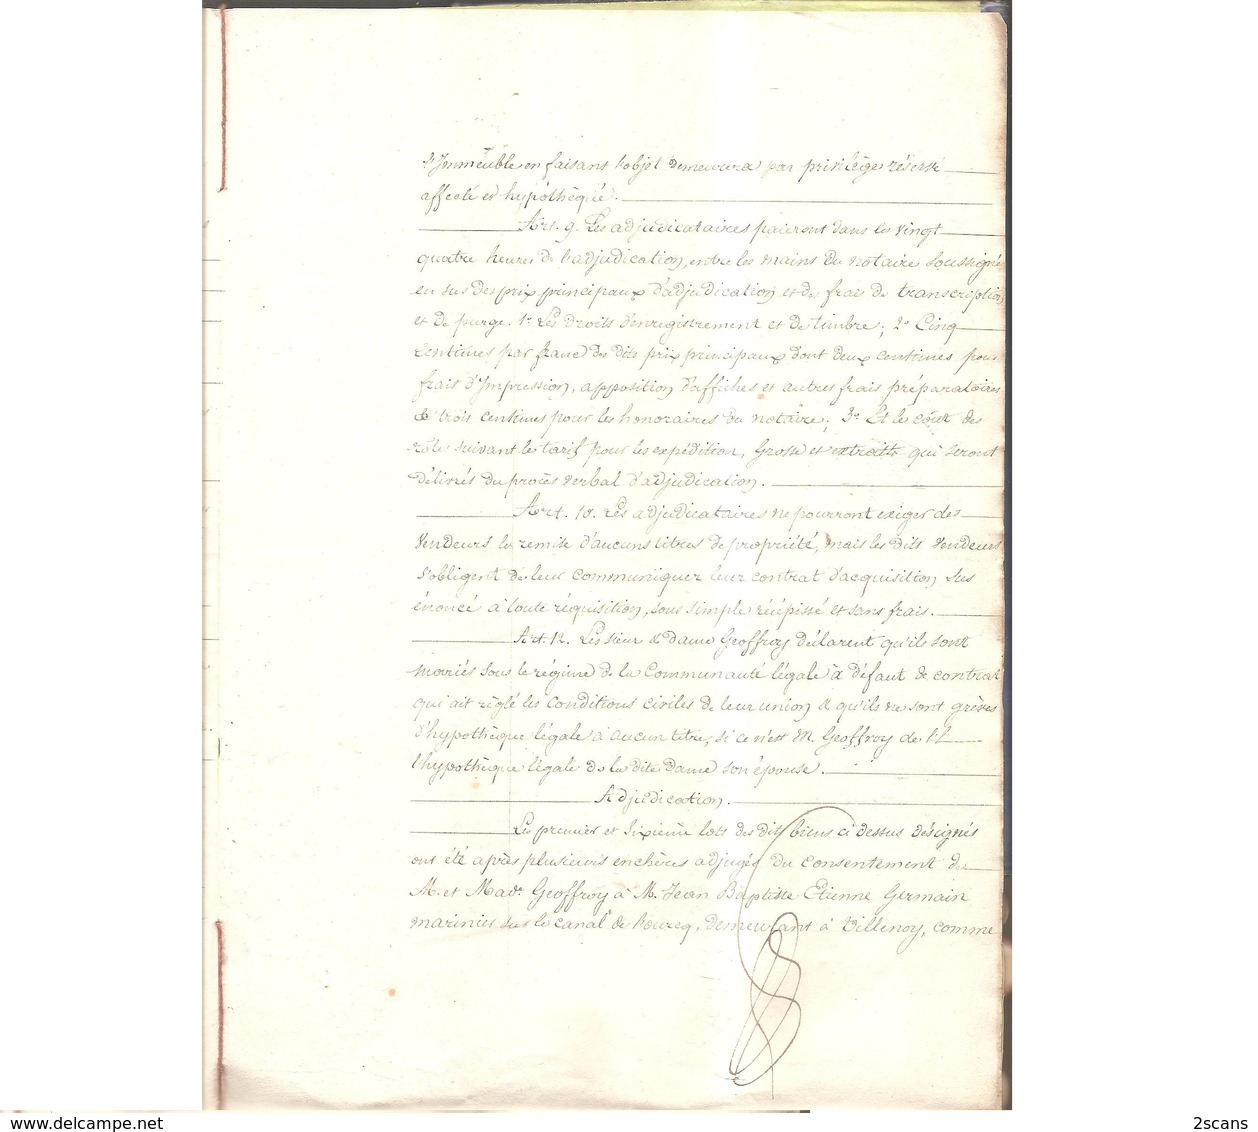 l'Immeuble en faisant l'objet demeurera par privilège réservé
affecté et hypothéqué.
Art. 9. Les adjudicataires paieront dans les vingt
quatre heures de l'adjudication, entre les mains du notaire soussigné
en sus des prix principaux d'adjudication et des frais de transcription
et de purge. 1º Les droits d'enregistrement et de timbre; 2º Cinq
centimes par franc des dits prix principaux dont deux centimes pour
frais d'Impression, apposition d'affiches et autres frais préparatoires
& trois centimes pour les honoraires du notaire; 3º Et le coût des
rôles suivant le tarif pour les expédition, Grosse et extraits qui seront
délivrés du procès verbal d'adjudication.
Art. 10. Les adjudicataires ne pourront exiger des
Vendeurs la remise d'aucuns titres de propriété, mais les dits Vendeurs
s'obligent de leur communiquer leur contrat d'acquisition sus
énoncé à toute réquisition, sous simple récépissé et sans frais.
Art. 12. Les sieur & dame Geoffroy déclarent qu'ils sont
mariés sous le régime de la Communauté légale à défaut de contrat
qui ait réglé les conditions civiles de leur union & qu'ils ne sont grévés
d'hypothèque légale à aucun titre, si ce n'est M. Geoffroy de
l'hypothèque légale de la dite Dame son épouse.
Adjudication.
Les premier et sixième lots des dits biens ci dessus désignés
ont été après plusieurs enchères adjugés du consentement de
M. et Made Geoffroy à M. Jean Baptiste Etienne Germain
marinier sur le canal de l'ourcq, demeurant à Villenoy, comme
www.delcampe.net
2scans